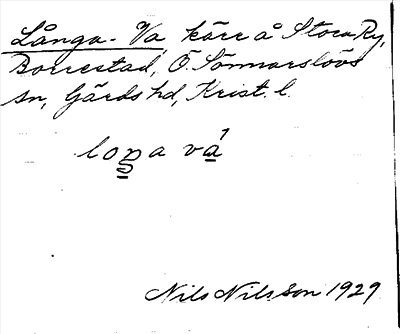 Långa-Va, kärr å Stora Ry,
Borrestad, Ö. Sönnarslövs
sn, Gärds hd, Krist. l.
Nils Nilsson 1929